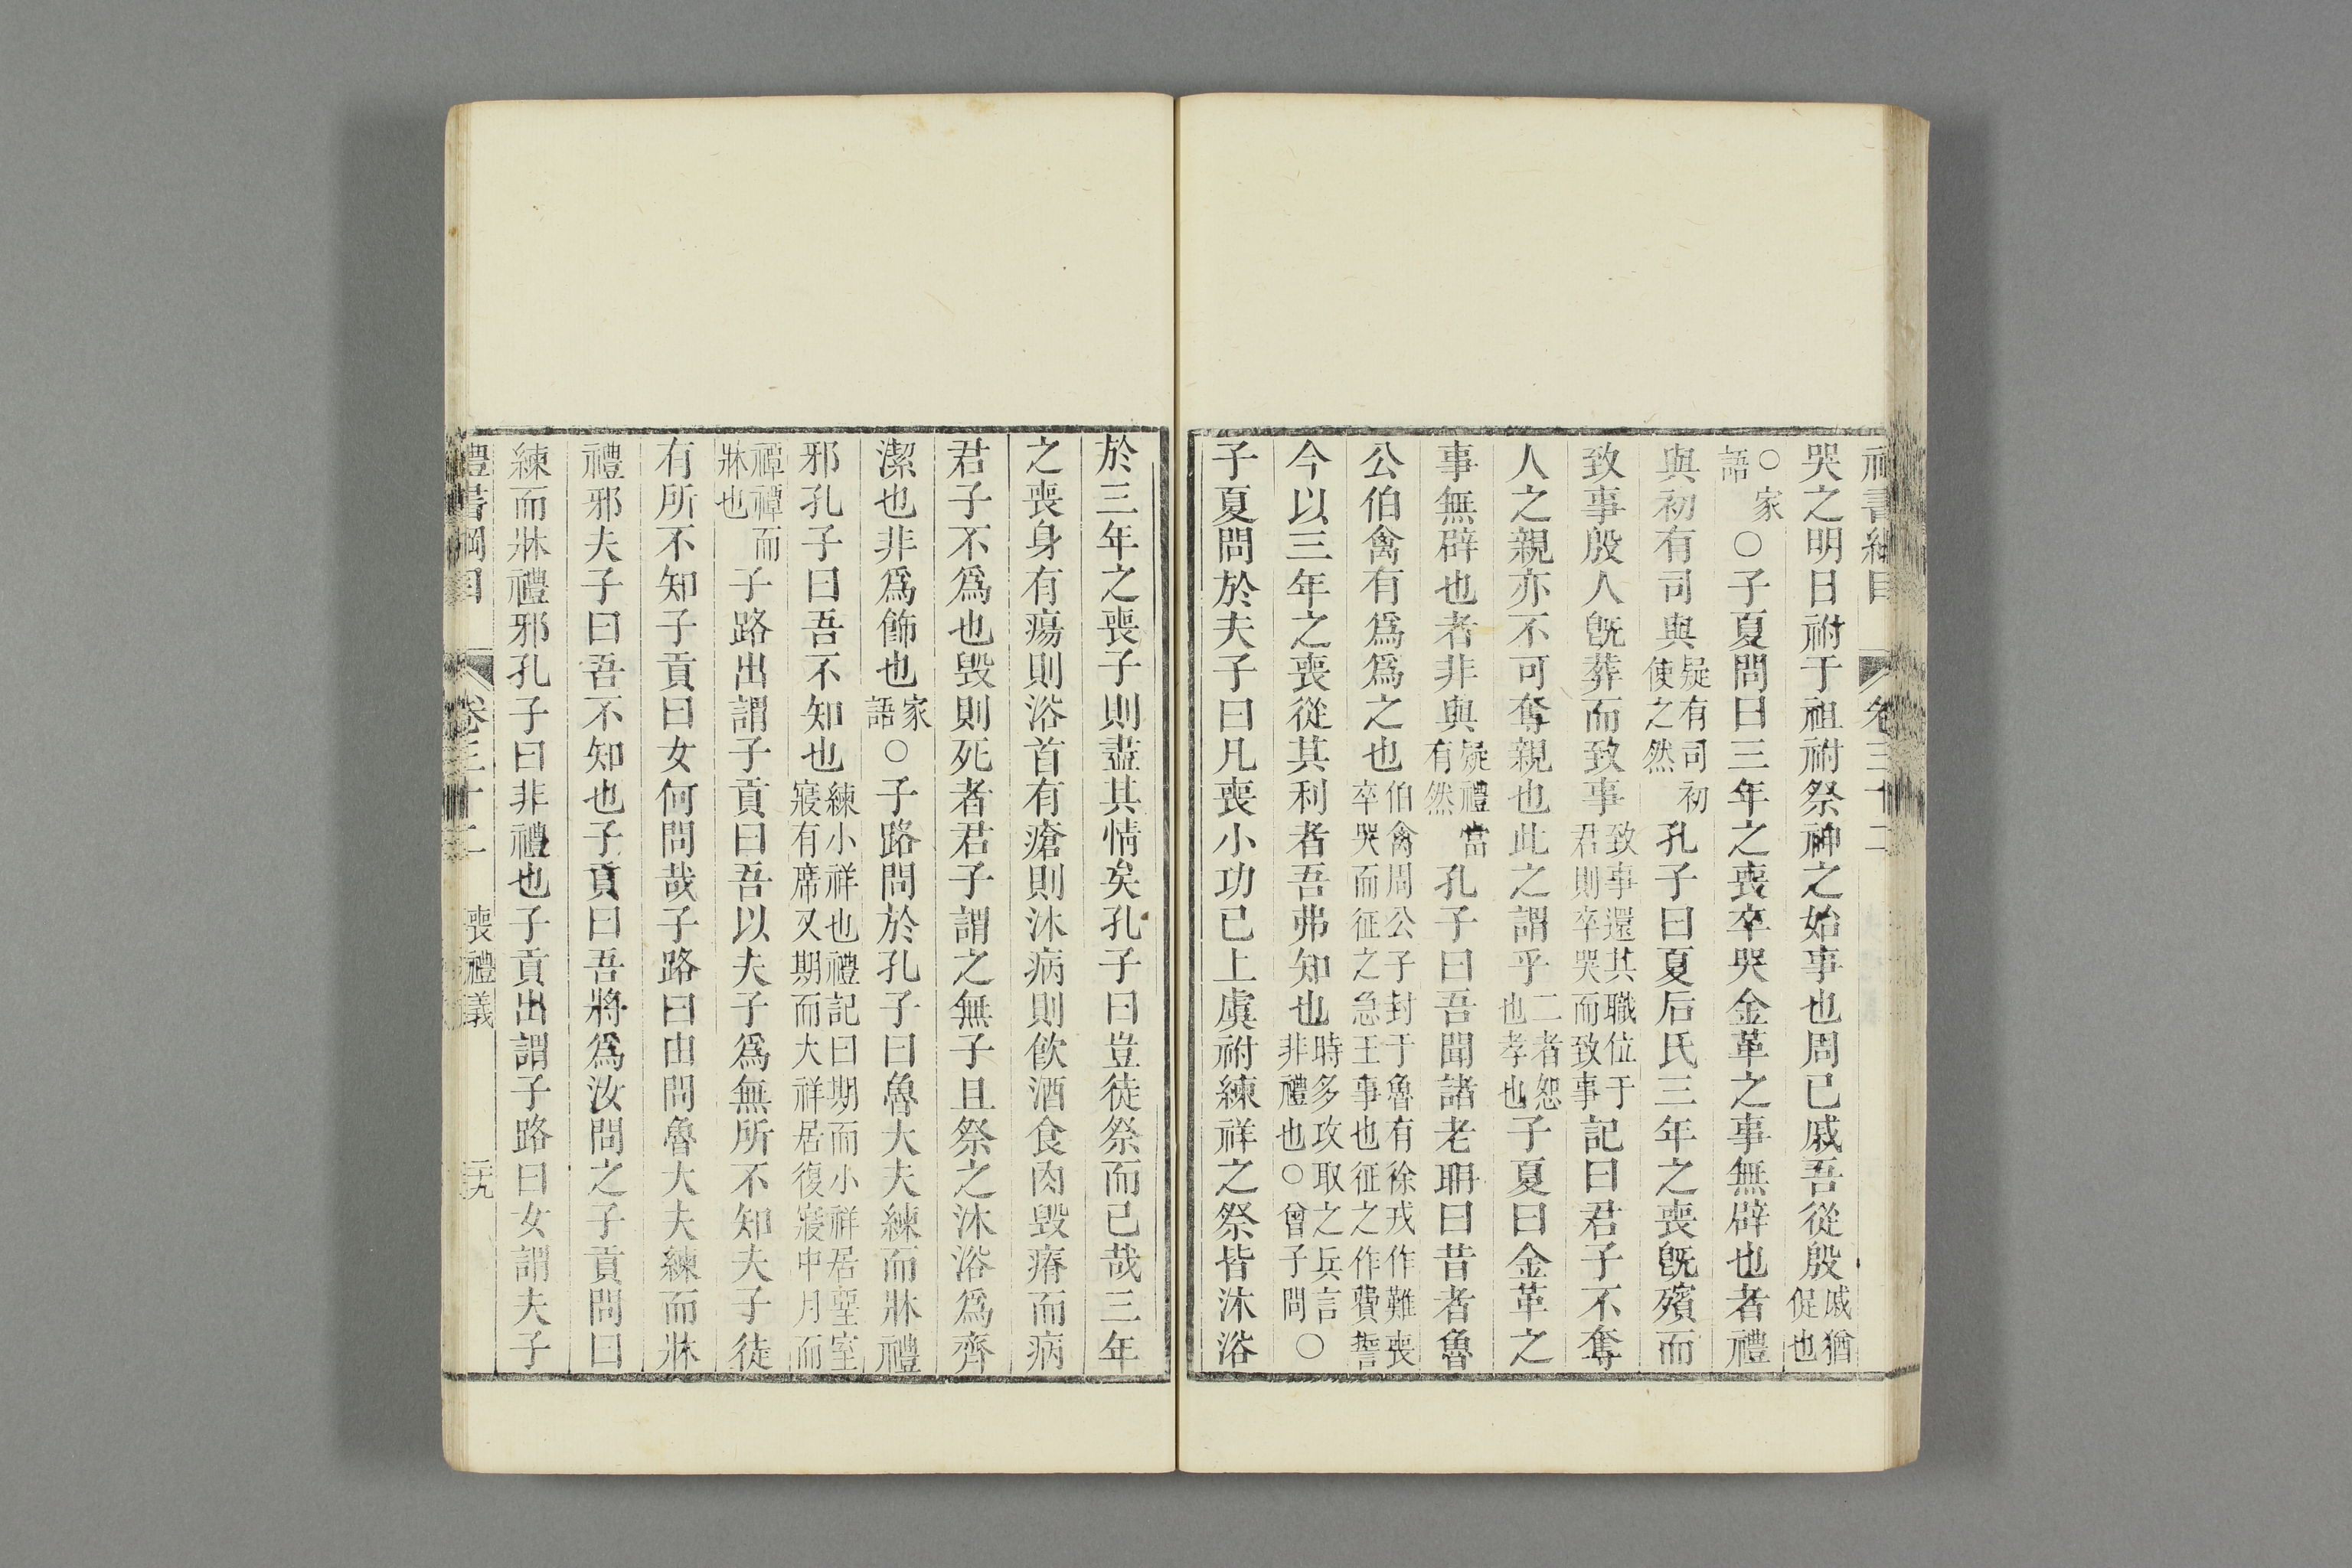 禮書綱目 卷三十二
哭之明日祔于祖祔祭神之始事也周已戚吾從殷戚猶促也
○家語○子夏問曰三年之喪卒哭金革之事無辟也者禮
與初有司與疑有司初使之然孔子曰夏后氏三年之喪旣殯而
致事殷人旣葬而致事致事還其職位于君則卒哭而致事記曰君子不奪
人之親亦不可奪親也此之謂乎二者恕也孝也子夏曰金革之
事無辟也者非與疑禮當有然孔子曰吾聞諸老耼曰昔者魯
公伯禽有爲爲之也伯禽周公子封于魯有徐戎作難喪卒哭而征之急王事也征之作費誓
今以三年之喪從其利者吾弗知也時多攻取之兵言非禮也○曾子問○
子夏問於夫子曰凡喪小功已上虞祔練祥之祭皆沐浴
於三年之喪子則盡其情矣孔子曰豈徒祭而已哉三年
之喪身有瘍則浴首有瘡則沐病則飮酒食肉毀瘠而病
君子不爲也毀則死者君子謂之無子且祭之沐浴爲齊
潔也非爲飾也家語○子路問於孔子曰魯大夫練而牀禮
邪孔子曰吾不知也練小祥也禮記曰期而小祥居堊室寢有席又期而大祥居復寢中月而
禫禫而牀也子路出謂子貢曰吾以夫子爲無所不知夫子徒
有所不知子貢曰女何問哉子路曰由問魯大夫練而牀
禮邪夫子曰吾不知也子貢曰吾將爲汝問之子貢問曰
練而牀禮邪孔子曰非禮也子貢出謂子路曰女謂夫子
禮書綱目 卷三十二 喪禮義 二十九